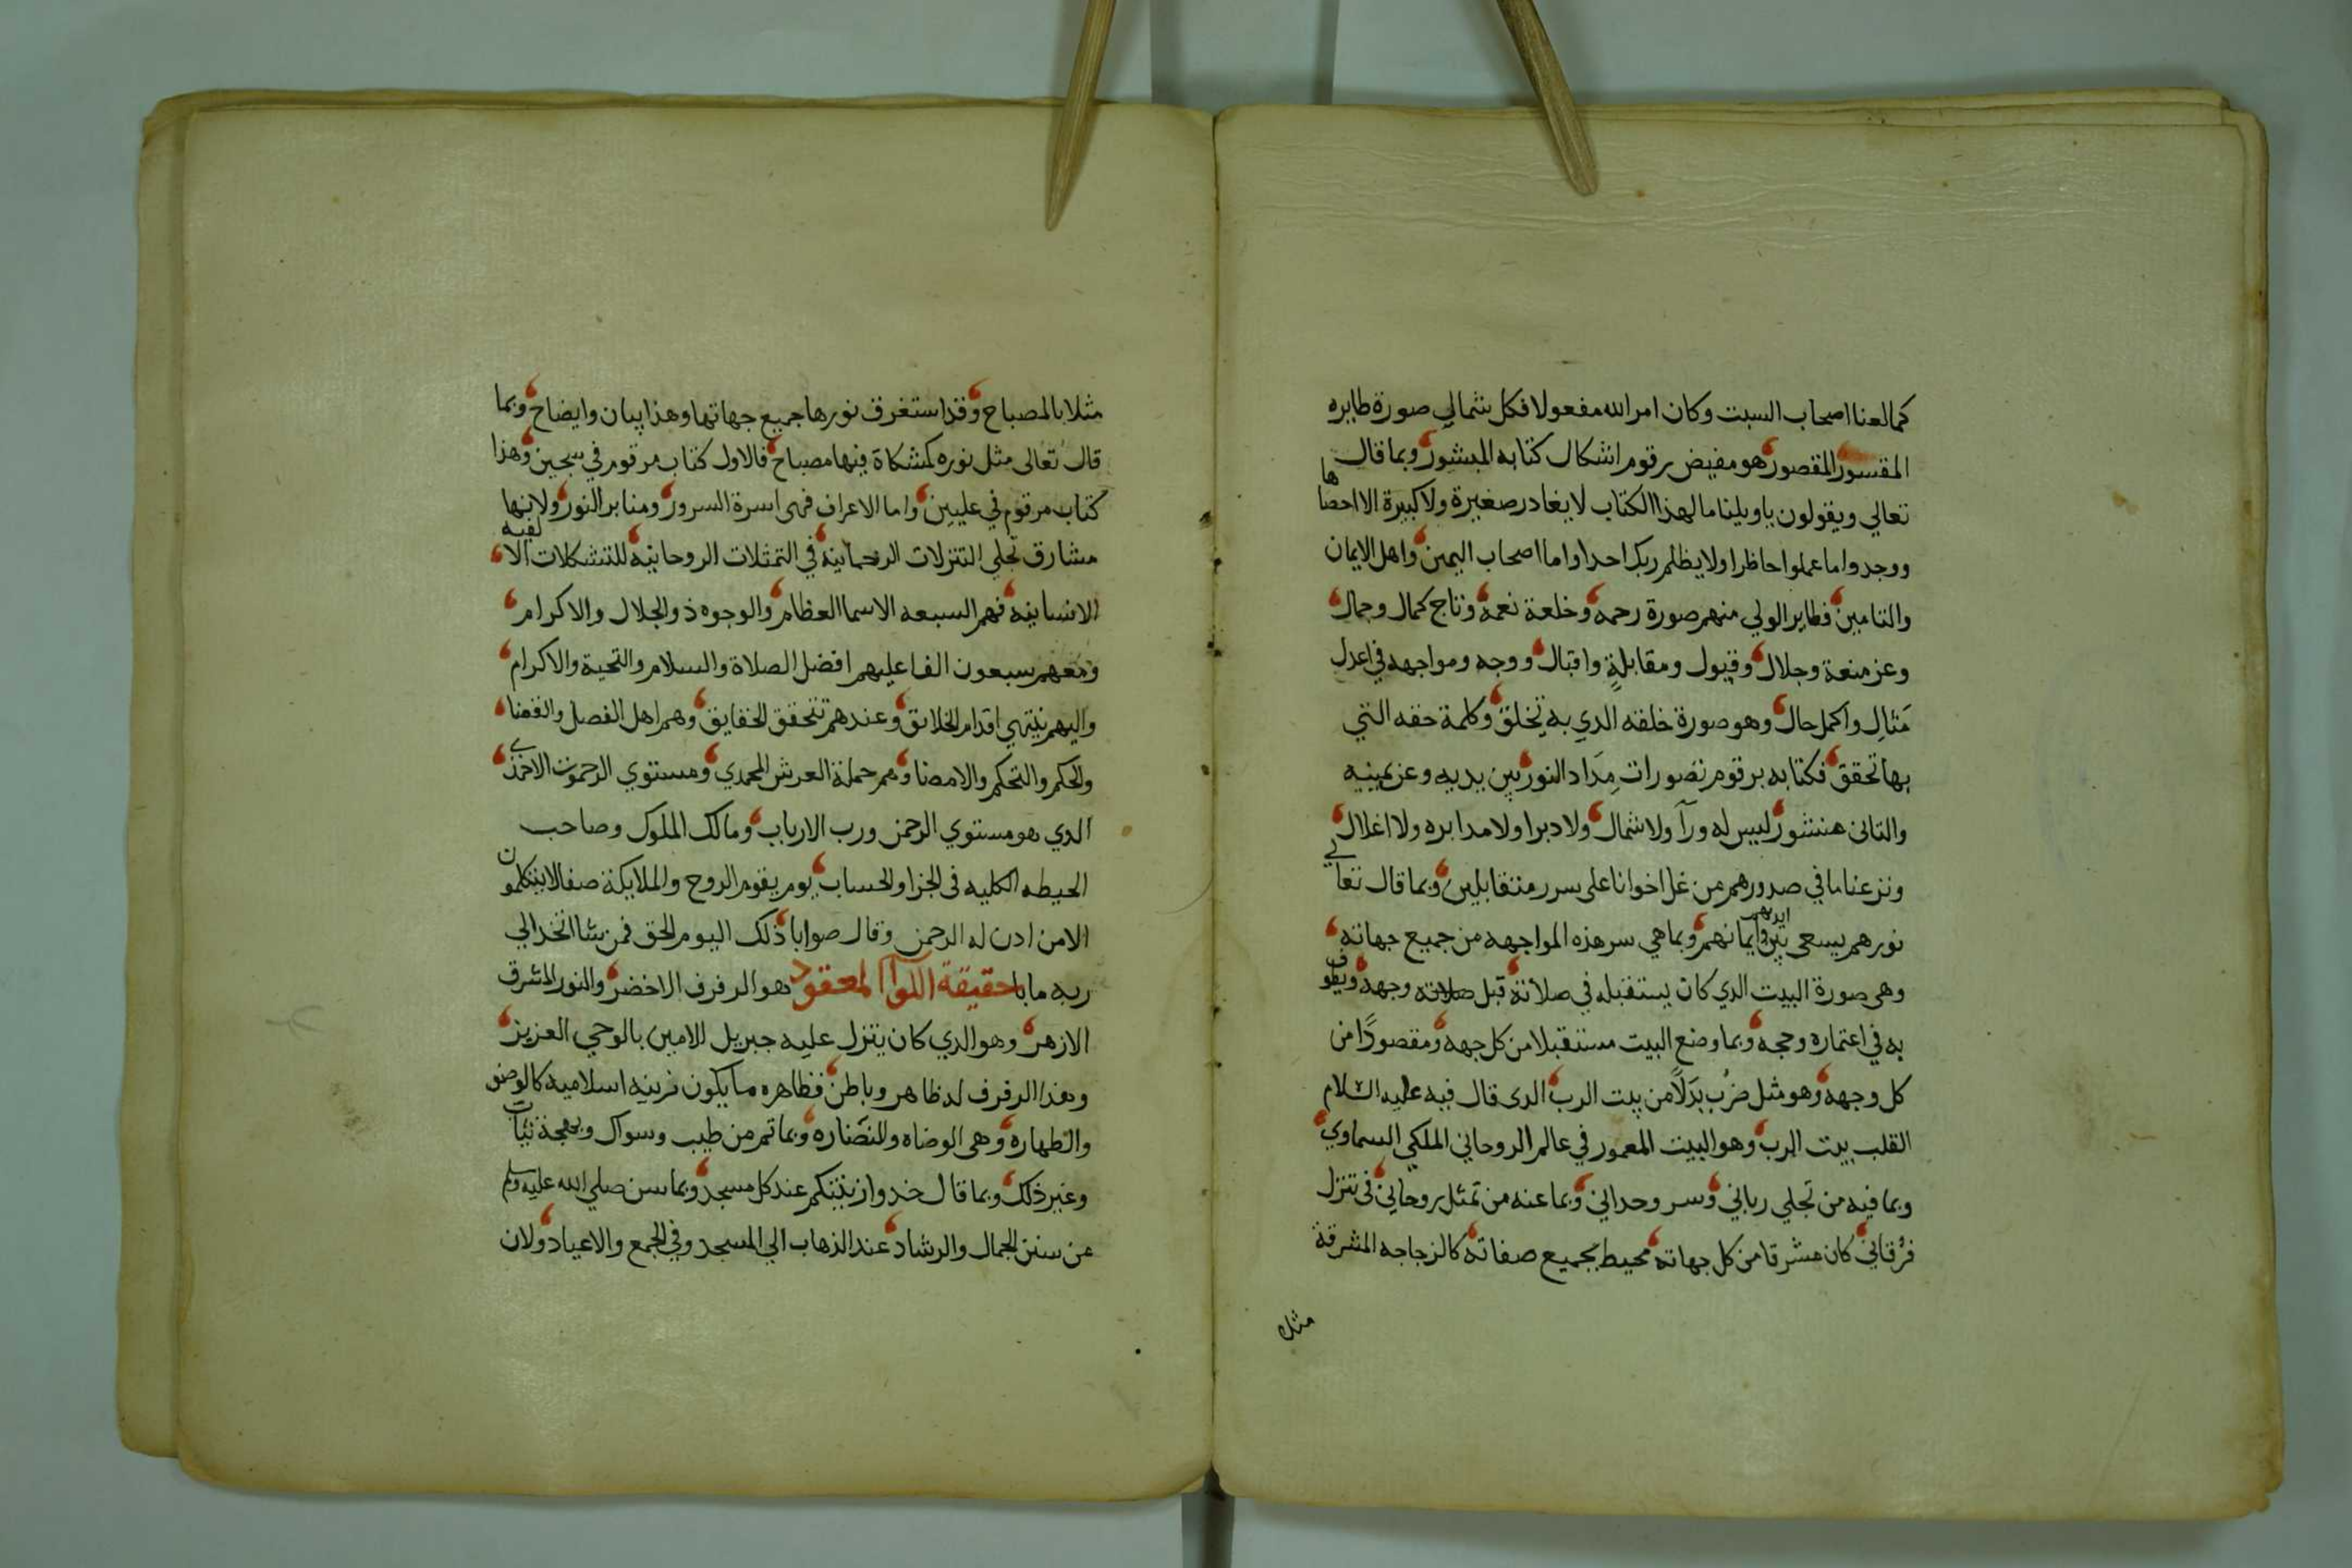 كمالعنا اصحاب السبت وكان امر الله مفعولا فكل شمالي صورة طايره
المقسور المقصور هو مفيض رقوم اشكال كتابه المبشور وبما قال
تعالي ويقولون ياويلنا مالهذا الكتاب لايغادر صغيرة ولاكبيرة الا احصاها
ووجدوا ماعملوا حاظرا ولايظلم ربك احدا واما اصحاب اليمين واهل الايمان
والتامين فطاير الولي منهم صورة رحمه وخلعة نعمة وتاج كمال وجمال
وعز منعة وجلال وقبول ومقابلةٍ واقبال ووجه ومواجهه في اعدل
مَثالِ واكمل حال وهو صورة خلقه الدي به تخلق وكلمة حقه التي
بها تحقق فكتابه برقوم تصورات مِدَاد النور بين يديه وعن يمينيه
والتانى منشور ليس له ورآ ولاشمال ولادبرا ولامدابره ولا اغلال
ونزعنا مافي صدورهم من غل اخوانا على سرر متقابلين وبما قال تعالي
نورهم يسعى بين ايديهم وايمانهم وبماهي سر هذه المواجهه من جميع جهاته
وهى صورة البيت الدي كان يستقبله في صلاته قبل صلاته وجهه ويطوف
به في اعتماره وحجه وبما وضع البيت مستقبلا من كل جهه ومقصودًا من
كل وجهه وهو مثل ضُرِب بَدَلاً من بيت الرب الدى قال فيه عليه السلام
القلب بيت الرب وهو البيت المعمور في عالم الروحاني الملكي السماوي
وبما فيه من تجلي رباني وسر وحداني وبما عنه من تمثل روحاني فى تنزل
فرقاني كان مشرقا من كل جهاته محيط بجميع صفاته كالزجاجه المشرقة
مثلا
مثلا بالمصباح وقد استغرق نورها جميع جهاتها وهذا بيان وايضاح وبما
قال تعالى مثل نوره كمشكاة فيها مصباح فالاول كتاب مرقوم في سجين وهذا
كتاب مرقوم في عليين واما الاعراف فهى اسرة السرور ومنابر النور ولانها
مشارق تجلي التنزلات الرحمانية في التمثلات الروحانية للتشكلات الالفيه
الانسانية فهم السبعه الاسما العظام والوجوه ذو الجلال والاكرام
ومعهم سبعون الفا عليهم افضل الصلاة والسلام والتحية والاكرام
واليهم ينتهي اقدام الخلائق وعندهم تتحقق الحقايق وهم اهل الفصل والقضا
والحكم والتحكم والامضا وهم حملة العرش المحمدي ومستوي الرحموت
الدي هو مستوي الرحمن ورب الارباب ومالك الملوك وصاحب
الحيطه الكليه فى الجزا والحساب يوم يقوم الروح والملايكة صفا لايتكلمون
الامن ادن له الرحمن وقال صوابا ذلك اليوم الحق فمن شا اتخد الي
ربه مابا حقيقة اللوآ المعقود هو الرفرف الاخضر والنور المشرق
الازهر وهو الدي كان يتنزل عليه جبريل الامين بالوحي العزيز
وهذا الرفرف له ظاهر وباطن فظاهره مايكون فزينه اسلاميه كالوضو
والطهاره وهى الوضاه والنضاره وبما تم من طيب وسواك وبهجة ثياب
وغير ذلك وبما قال خدوا زينتكم عند كل مسجد وبما سن صلي الله عليه وسلم
من سنن الجمال والرشاد عند الذهاب الي المسجد وفي الجمع والاعياد ولان